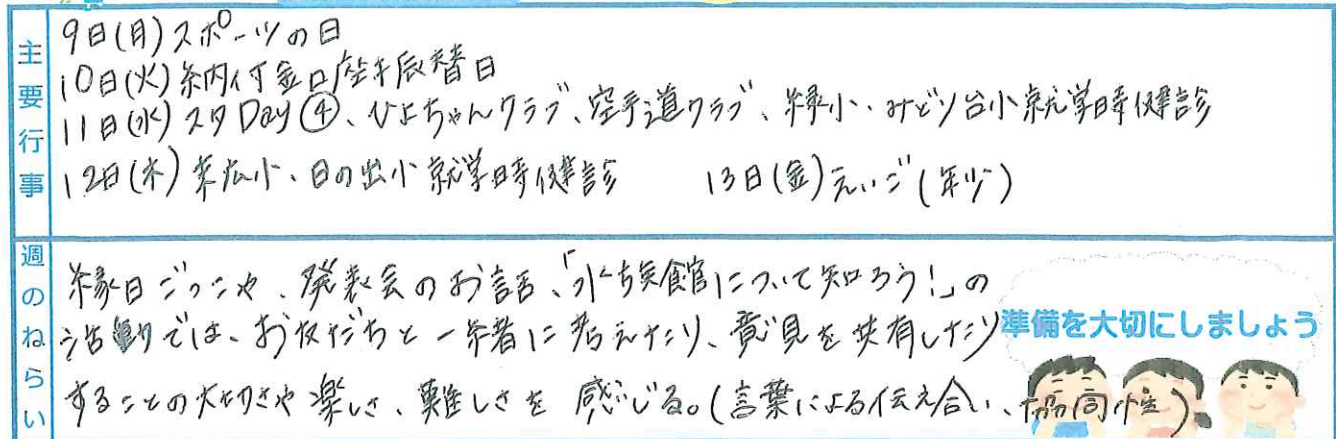 主要行事
9日(月)スポーツの日
10日(火)納付金口座振替日
11日(水)スタDay④、ひよちゃんクラブ、空手道クラブ、緑小・みどり台小就学時健診
12日(木)末広小、日の出小就学時健診　13日(金)えいご(年少)
週のねらい
縁日ごっこや、発表会のお話、「水族館について知ろう!」の
活動では、お友だちと一緒に考えたり、意見を共有したり
することの大切さや楽しさ、難しさを感じる。(言葉による伝え合い、協同性)
準備を大切にしましょう